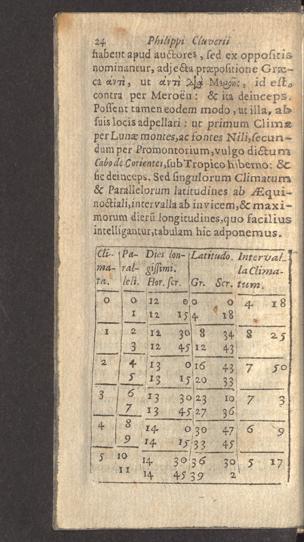 24 Philippi Cluverii
habent apud auctores, sed ex oppositis
nominantur, adjecta præpositione Græ-
ca ἀντὶ, ut ἀντὶ διὰ Μερόης, id est,
contra per Meroën: & ita deinceps.
Possent tamen eodem modo, ut illa, ab
suis locis adpellari: ut primum Clima
per Lunæ montes, ac fontes Nili, secun-
dum per Promontorium, vulgo dictum
Cabo de Corientes, sub Tropico hiberno: &
sic deinceps. Sed singulorum Climatum
& Parallelorum latitudines ab Æqui-
noctiali, intervalla ab invicem, & maxi-
morum dierū longitudines, quo facilius
intelligantur, tabulam hic adponemus.
Cli- Pa- Dies lon- Latitudo. Interval-
ma- ral- gissimi. la Clima-
ta. leli. Hor. scr. Gr. Scr. tum.
0 0 12 0 0 0 4 18
1 12 15 4 18
1 2 12 30 8 34 8 25
3 12 45 12 43
2 4 13 0 16 43 7 50
5 13 15 20 33
3 6 13 30 23 10 7 3
7 13 45 27 36
4 8 14 0 30 47 6 9
9 14 15 33 45
5 10 14 30 36 30 5 17
11 14 45 39 2